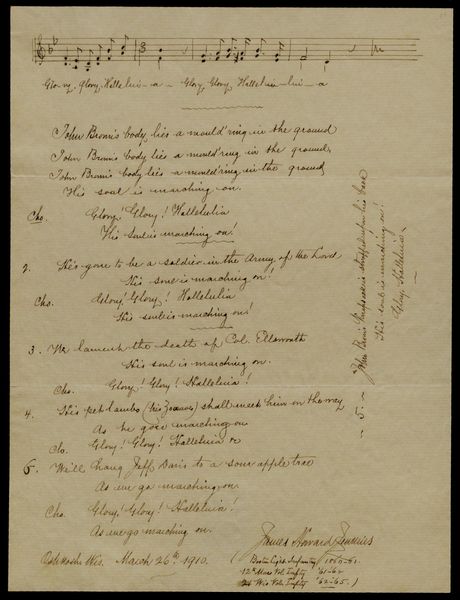 Glo-ry, Glory, Hallelui-a- Glory, Glory, Hallelui-lui-a
John Brown's body lies a mould'ring in the ground
John Brown's body lies a mould'ring in the ground,
John Brown's body lies a mould'ring in the ground
His soul is marching on.
Cho. Glory! Glory! Hallelulia
His soul is marching on!
2. He's gone to be a soldier in the Army of the Lord
His soul is marching on!
Cho. Glory! Glory! Hallelulia
His soul is marching on!
3. We lament the death of Col. Ellsworth
His soul is marching on.
Cho. Glory! Glory! Halleluia!
4. His pet lambs (his Zouaves) shall meet him on the way
As he goes marching on
Cho. Glory! Glory! Halleluia
6. We'll hang Jeff Davis to a sour apple tree
As we go marching on.
Cho. Glory! Glory! Halleluia!
As we go marching on.
Oshkosh Wis. March 26th 1910.
James Howard Jenkins
(Boston Light Infantry 1860-61.
12th Mass Vol. Infty '61-62
Wis Vol. Infty '62-65.)
- 5 - John Brown's knapsack is strapped upon his back
His soul is marching on!
Glory Halleluia